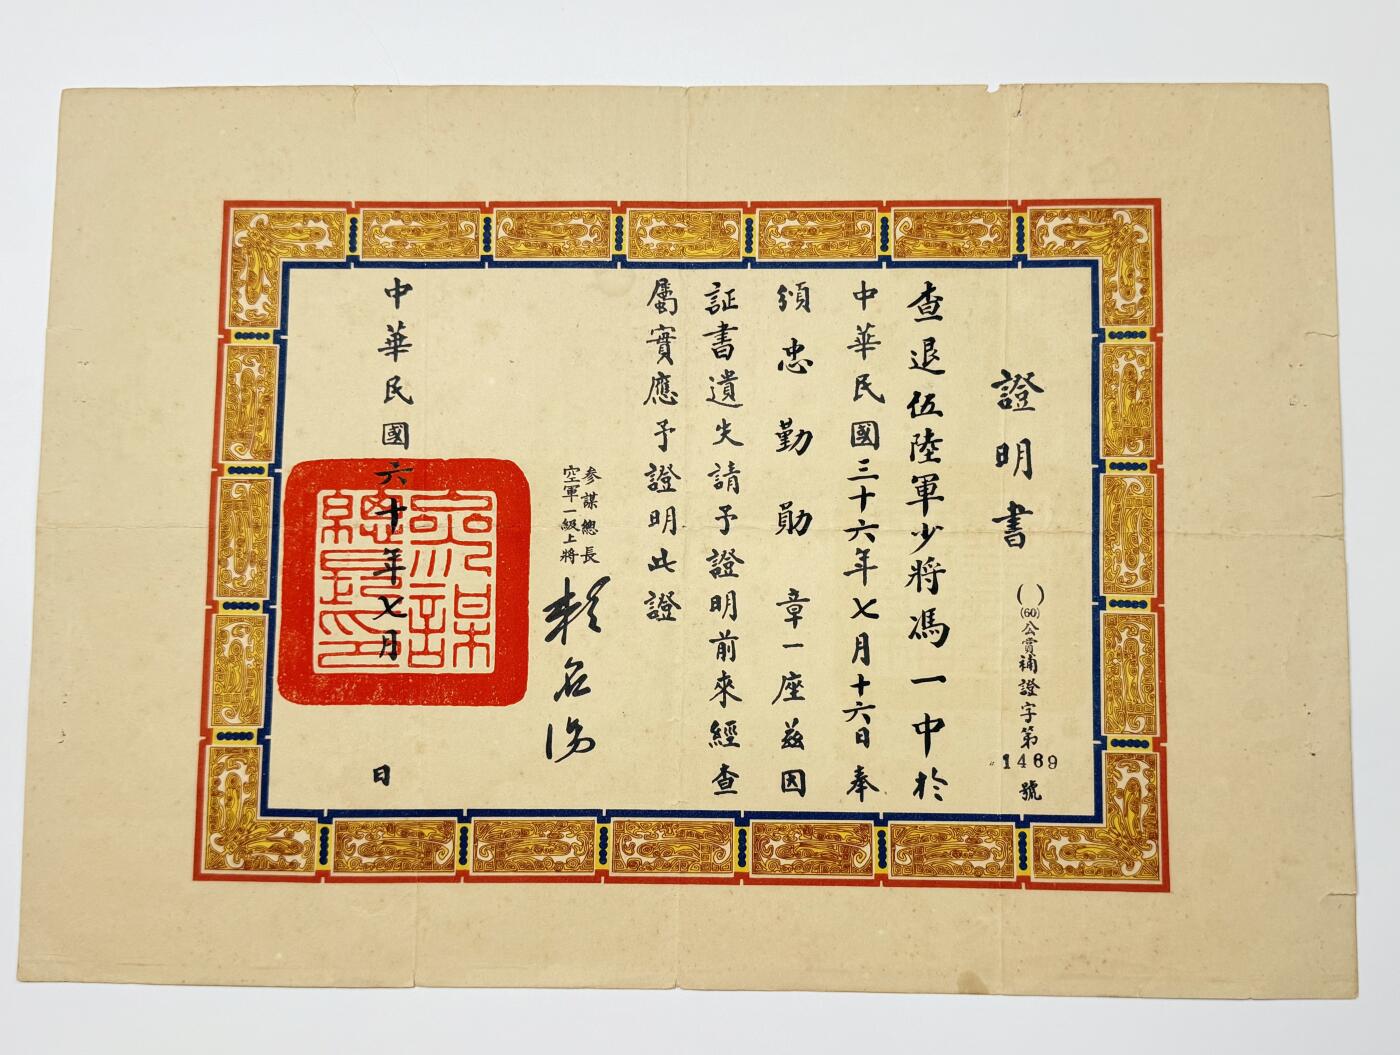 證明書
( )
(60)公賞補證字第
1469
號
查退伍陸軍少將馮一中於
中華民國三十六年七月十六日奉
頒忠勤勛章一座茲因
証書遺失請予證明前來經查
屬實應予證明此證
參謀總長
空軍一級上將
賴名湯
中華民國六十年七月 日
參謀總長之印